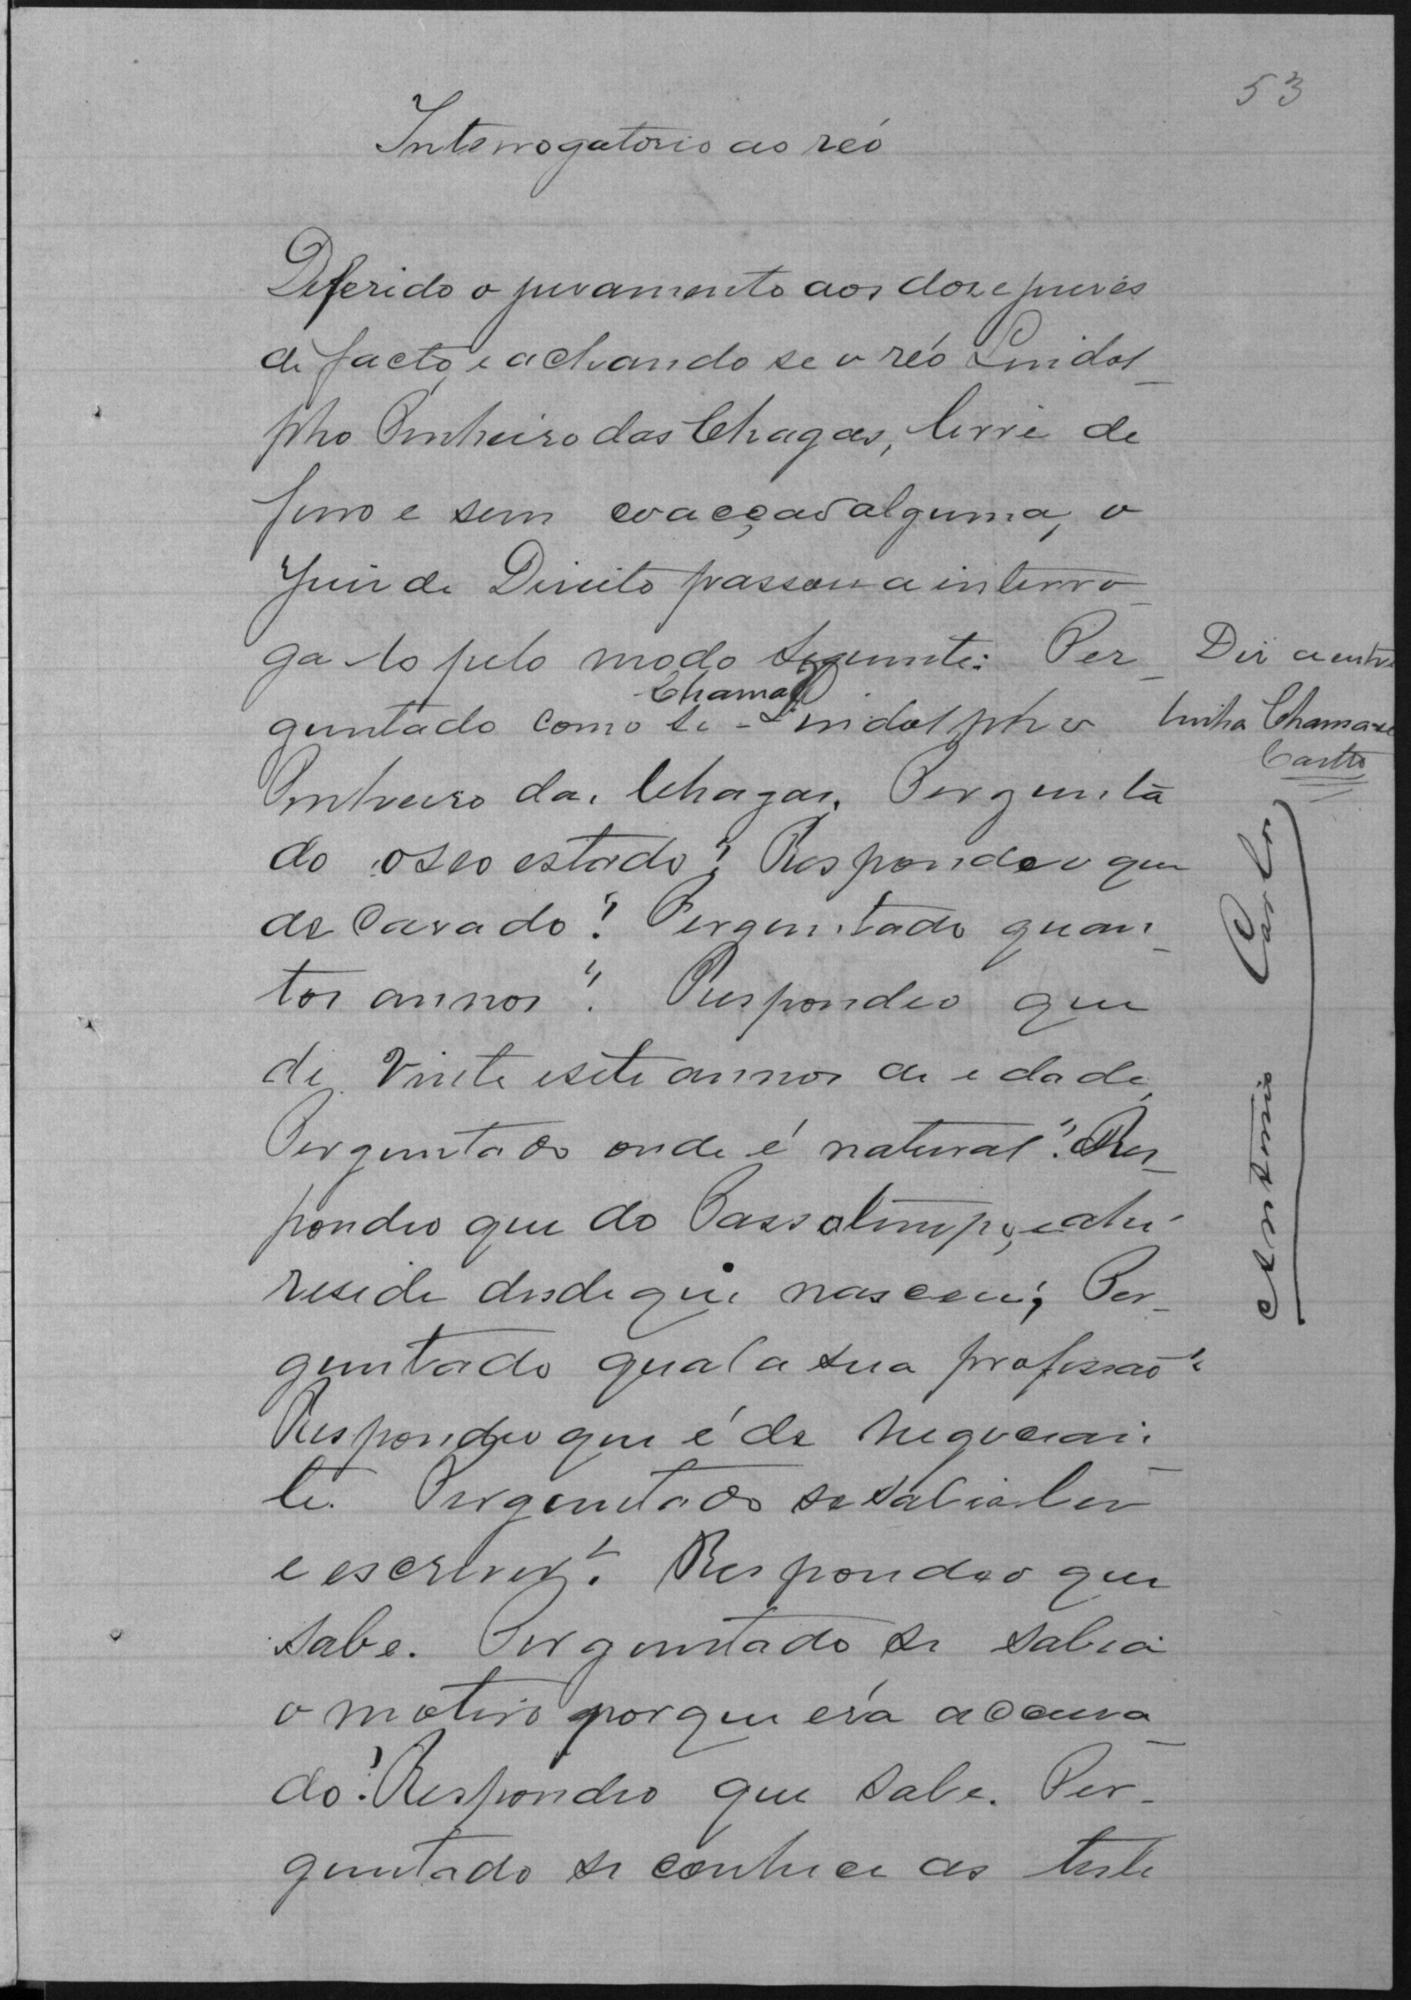 53
Interrogatorio ao reó
Deferido o juramento aos doze juizes
de facto, e achando se o reó Lindol_
pho Pinheiro das Chagas, livre de
ferro e sem coacção alguma, o
Juiz de Direito passou a interro_
ga lo pelo modo seguinte: Per_
Chama
guntado como se - Lindolpho
Pinheiro das Chagas. Pergunta
do o seo estado? Respondeo que
de casado? Perguntado quan_
tos annos? Respondeo que
de vinte e sete annos de edade,
Perguntado onde é natural? Res_
pondeo que do Passo limpo, e ahi
reside desde que nasceu; Per_
guntado qual a sua profissão?
Respondeo que é de negocian_
te. Perguntado se sabia ler
e escrever? Respondeo que
sabe. Perguntado se sabia
o motivo porque era accusa_
do? Respondeo que sabe. Per_
guntado se conhece as teste
Diz a entre
linha Chama-se
Castro
Antonio Carlos